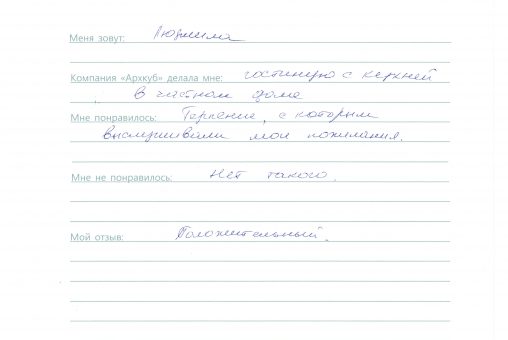 Меня зовут: Людмила
Компания «Архкуб» делала мне: гостиную с кухней
в частном доме
Мне понравилось: Терпение, с которым
выслушивали мои пожелания.
Мне не понравилось: Нет такого.
Мой отзыв: Положительный.